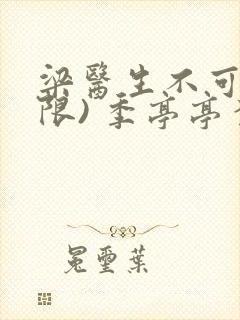 梁醫生不可
限) 季亭亭
冕璽葉